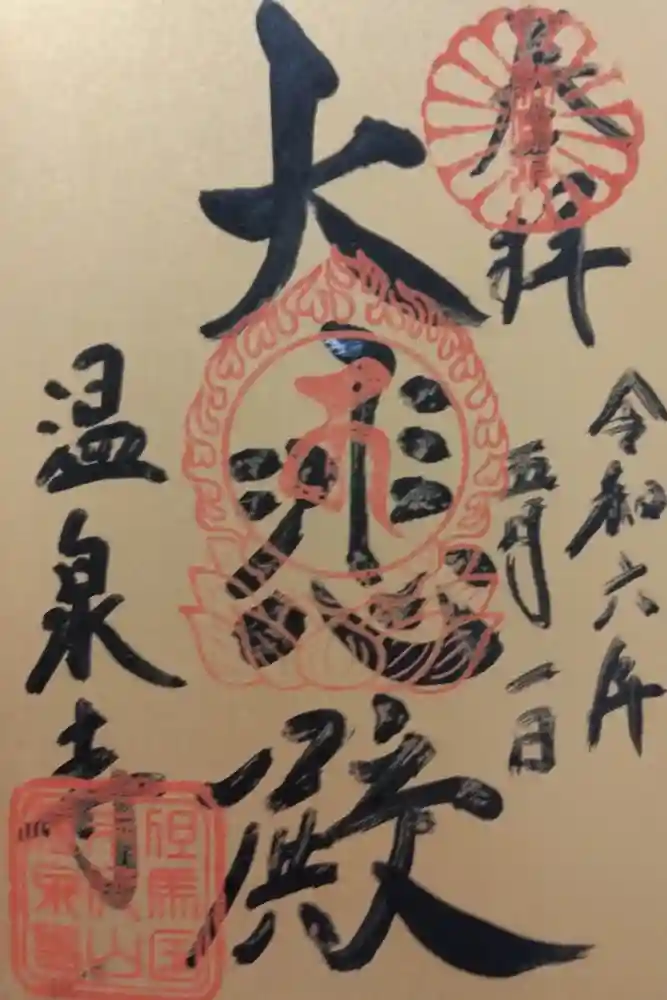 奉拝
令和六年
五月一日
大悲殿
温泉寺
但馬国